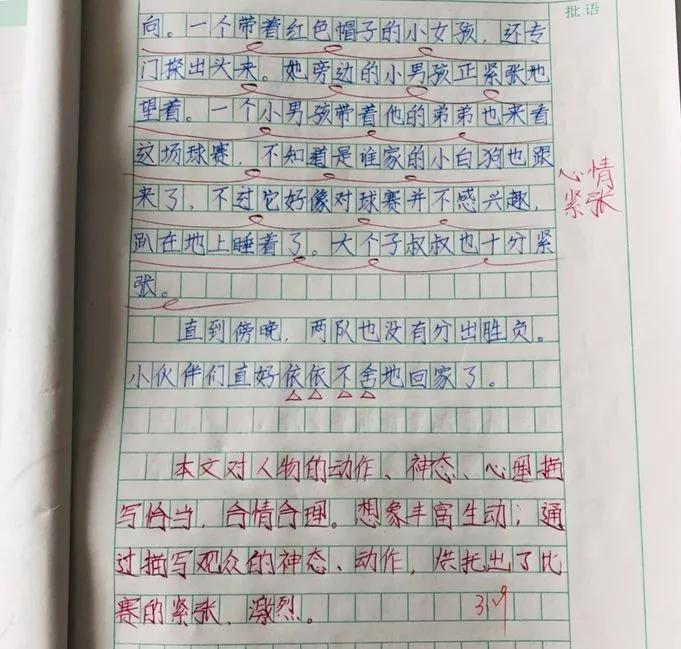 批语
向。一个带着红色帽子的小女孩，还专
门探出头来。她旁边的小男孩正紧张地
望着。一个小男孩带着他的弟弟也来看
这场球赛，不知道是谁家的小白狗也跟
来了，不过它好像对球赛并不感兴趣，
趴在地上睡着了。大个子叔叔也十分紧
张。
心情
紧张
直到傍晚，两队也没有分出胜负。
小伙伴们直好依依不舍地回家了。
本文对人物的动作、神态、心理描
写恰当，合情合理。想象丰富生动；通
过描写观众的神态、动作，烘托出了比
赛的紧张、激烈。
3.9